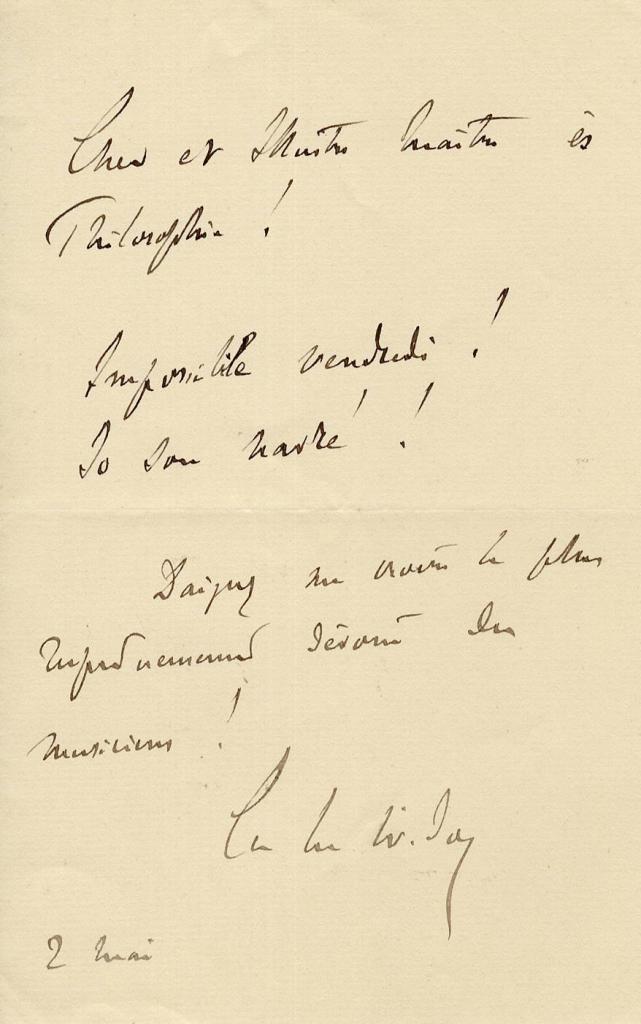 Cher et Illustre Maître ès
Philosophie !
Impossible vendredi !
Io son navré ! !
Daignez me croire le plus
respectueusement dévoué des
musiciens !
Ch. M. Widor
2 mai